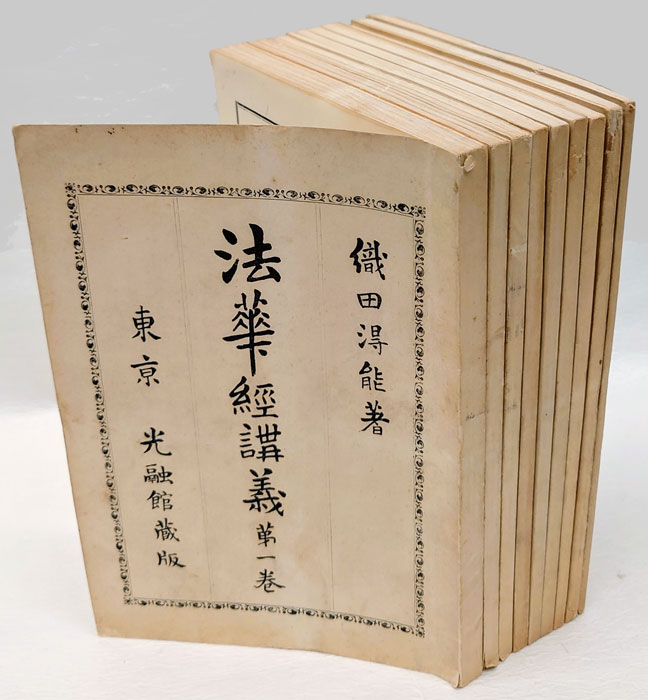 織田得能著
法華經講義 第一卷
東京 光融館藏版